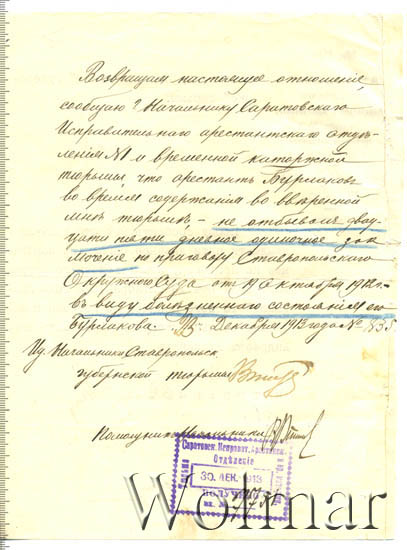 Возвращая настоящее отношение,
сообщаю г. Начальнику Саратовского
Исправительного арестантского отдѣ-
ленія №1 и временной каторжной
тюрьмы, что арестантъ Бурлаковъ
во время содержанія во ввѣренной
мнѣ тюрьмѣ, - не отбывалъ двад-
цати пяти дневное одиночное зак
люченіе по приговору Ставропольскаго
Окружного Суда отъ 19 Октября 1912 г.
въ виду болѣзненнаго состоянія его
Бурлакова. Декабря 1913 года №
Ид. Начальника Ставропольск.
губернской тюрьмы
Помощникъ Начальника
Саратовск. Исправит. Арестантск.
Отдѣленіе
30. ДЕК. 1913
ПОЛУЧЕНО
вх. №
Wolmar